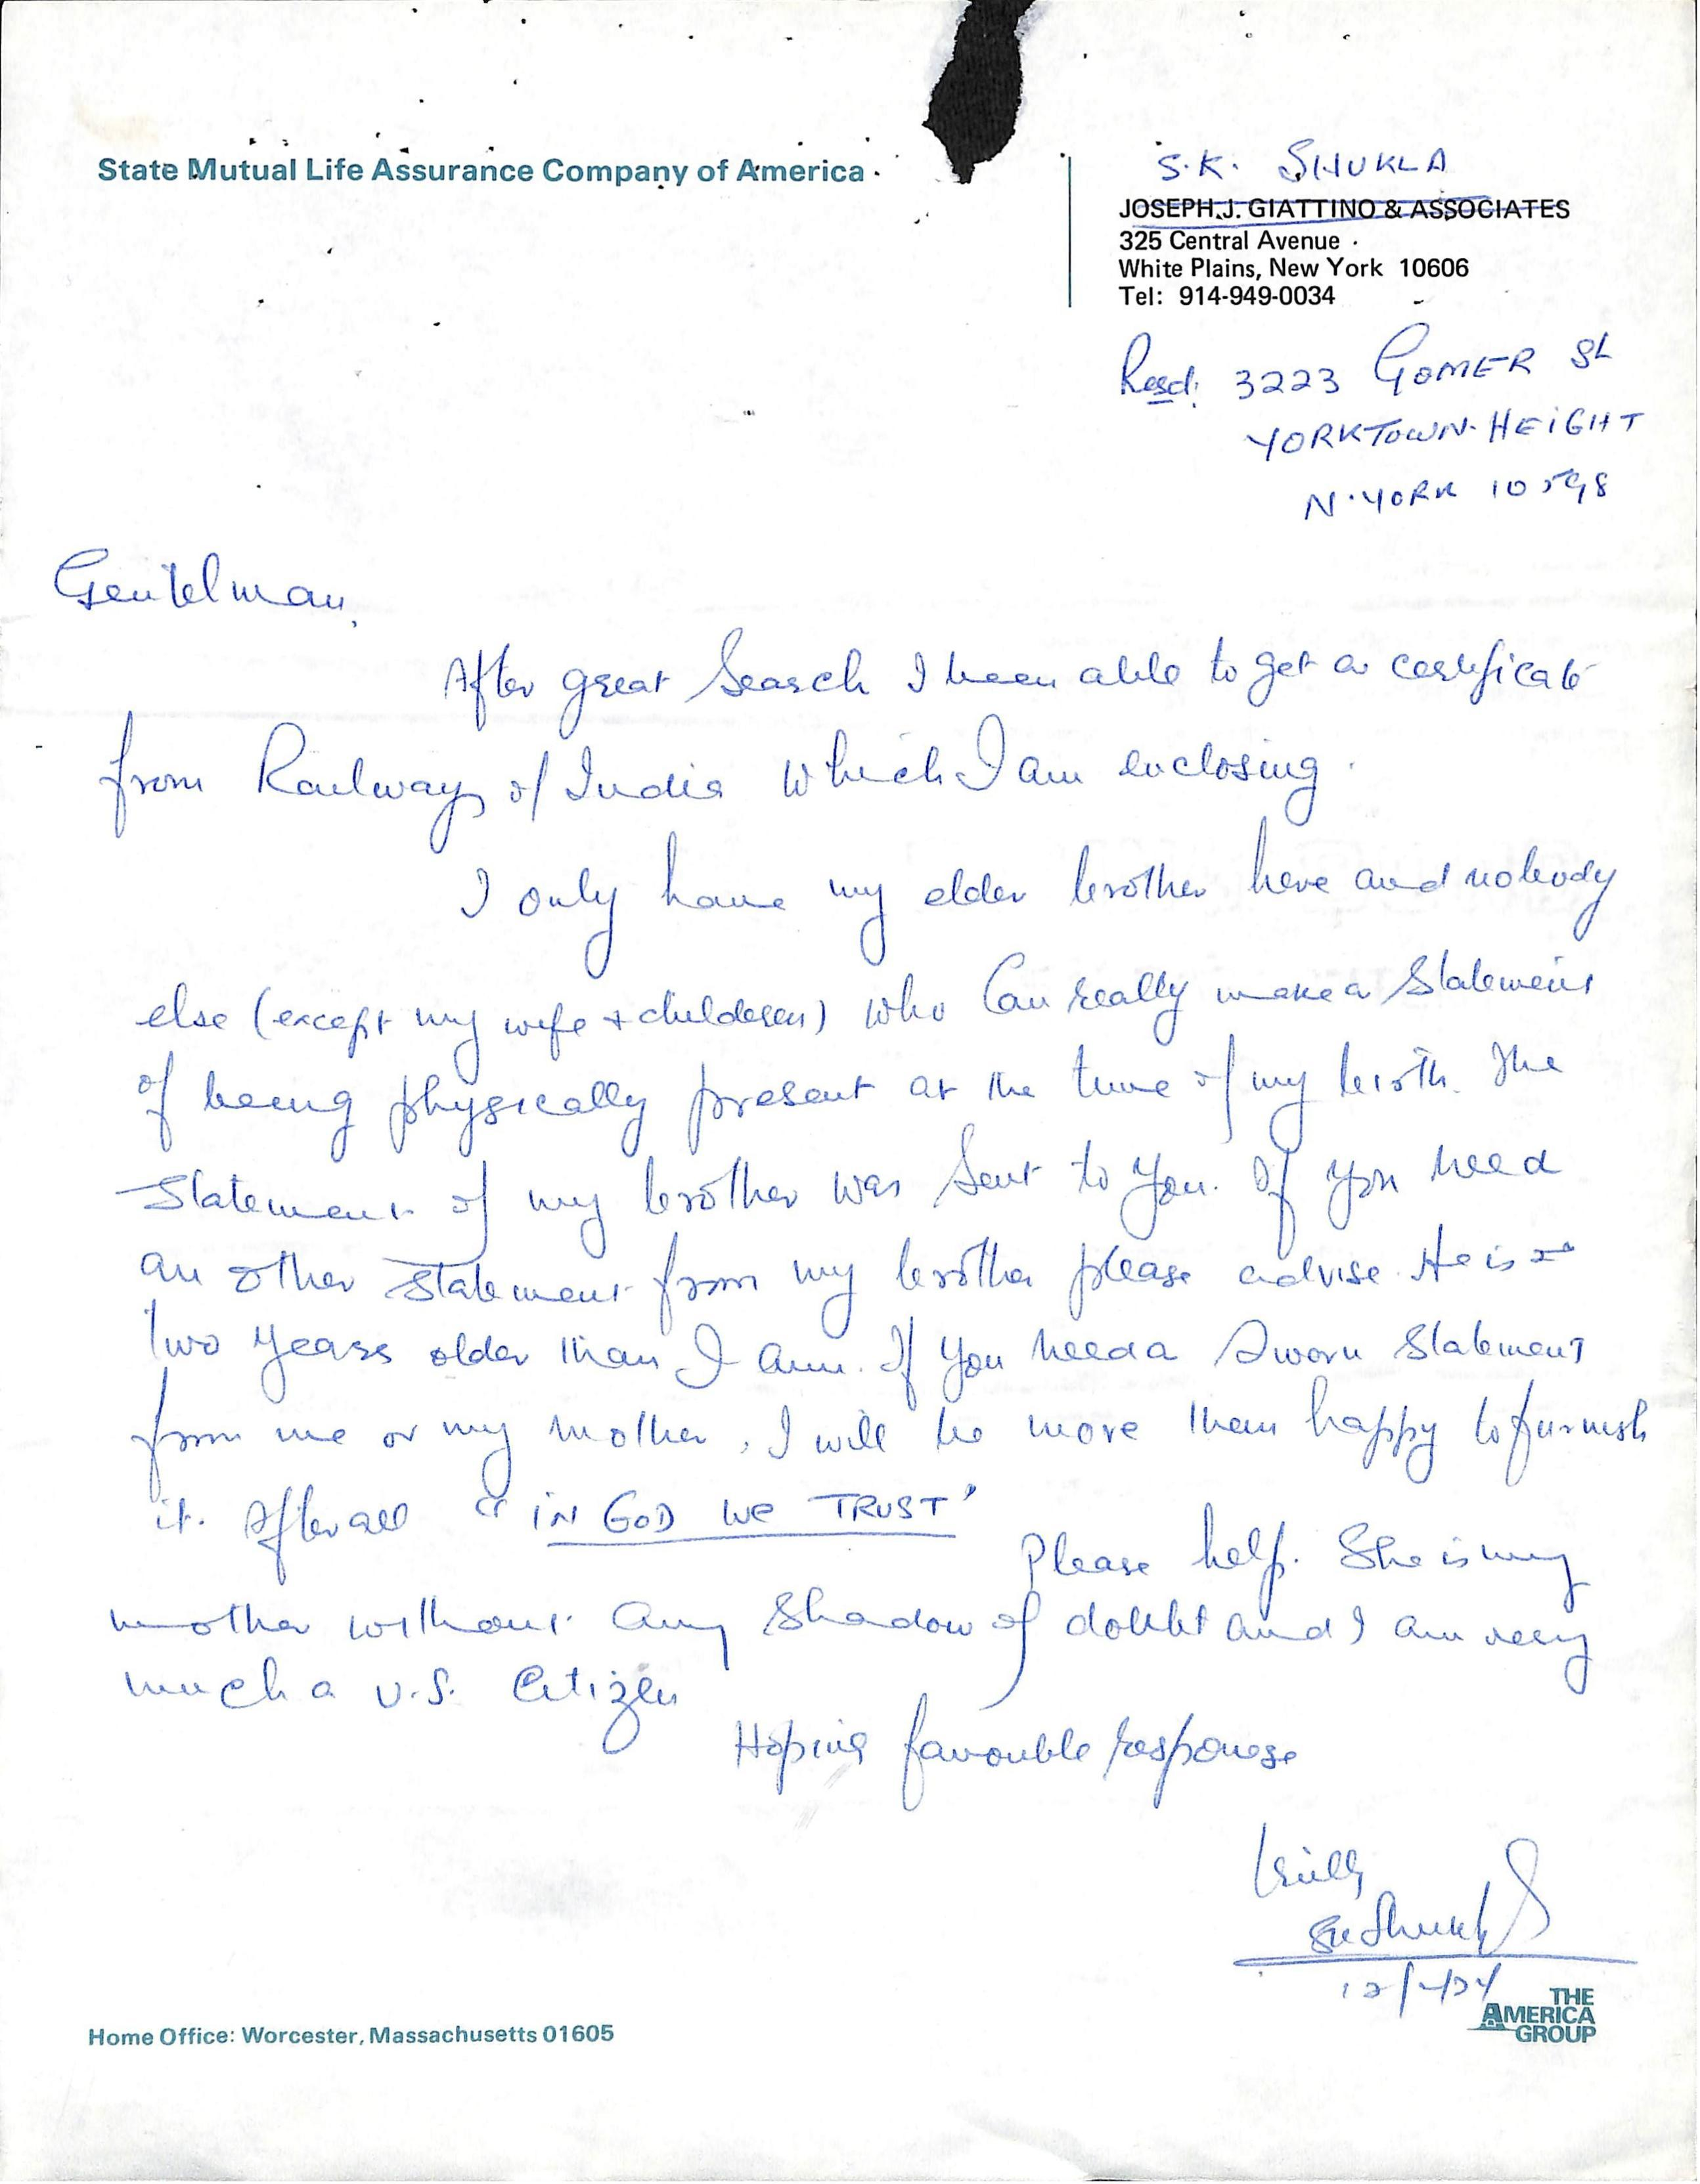 State Mutual Life Assurance Company of America
S.K. SHUKLA
JOSEPH J. GIATTINO & ASSOCIATES
325 Central Avenue
White Plains, New York 10606
Tel: 914-949-0034
Resd: 3223 GOMER St
YORKTOWN-HEIGHT
N.YORK 10598
Gentelman,
After great Search I been able to get a certificate
from Railways of India which I am enclosing.
I only have my elder brother here and nobody
else (except my wife + childeren) who Can really make a Statement
of being physically present at the time of my birth. The
Statement of my brother was Sent to you. If you need
an other Statement from my brother please advise. He is
two years older than I am. If you need a Sworn Statement
from me or my mother, I will be more then happy to furnish
it. After all "IN GOD WE TRUST'
Please help. She is my
mother without any Shadow of doubt and I am very
much a U.S. Citizen
Hoping favouble responese
Truly
SK Shukla
THE
AMERICA
GROUP
Home Office: Worcester, Massachusetts 01605